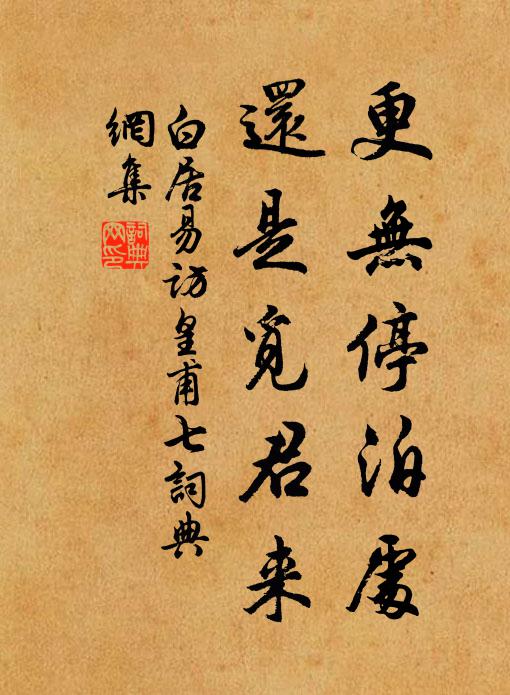 更無停泊處
還是覓君来
白居易訪皇甫七詞典
網集
詞典
网印